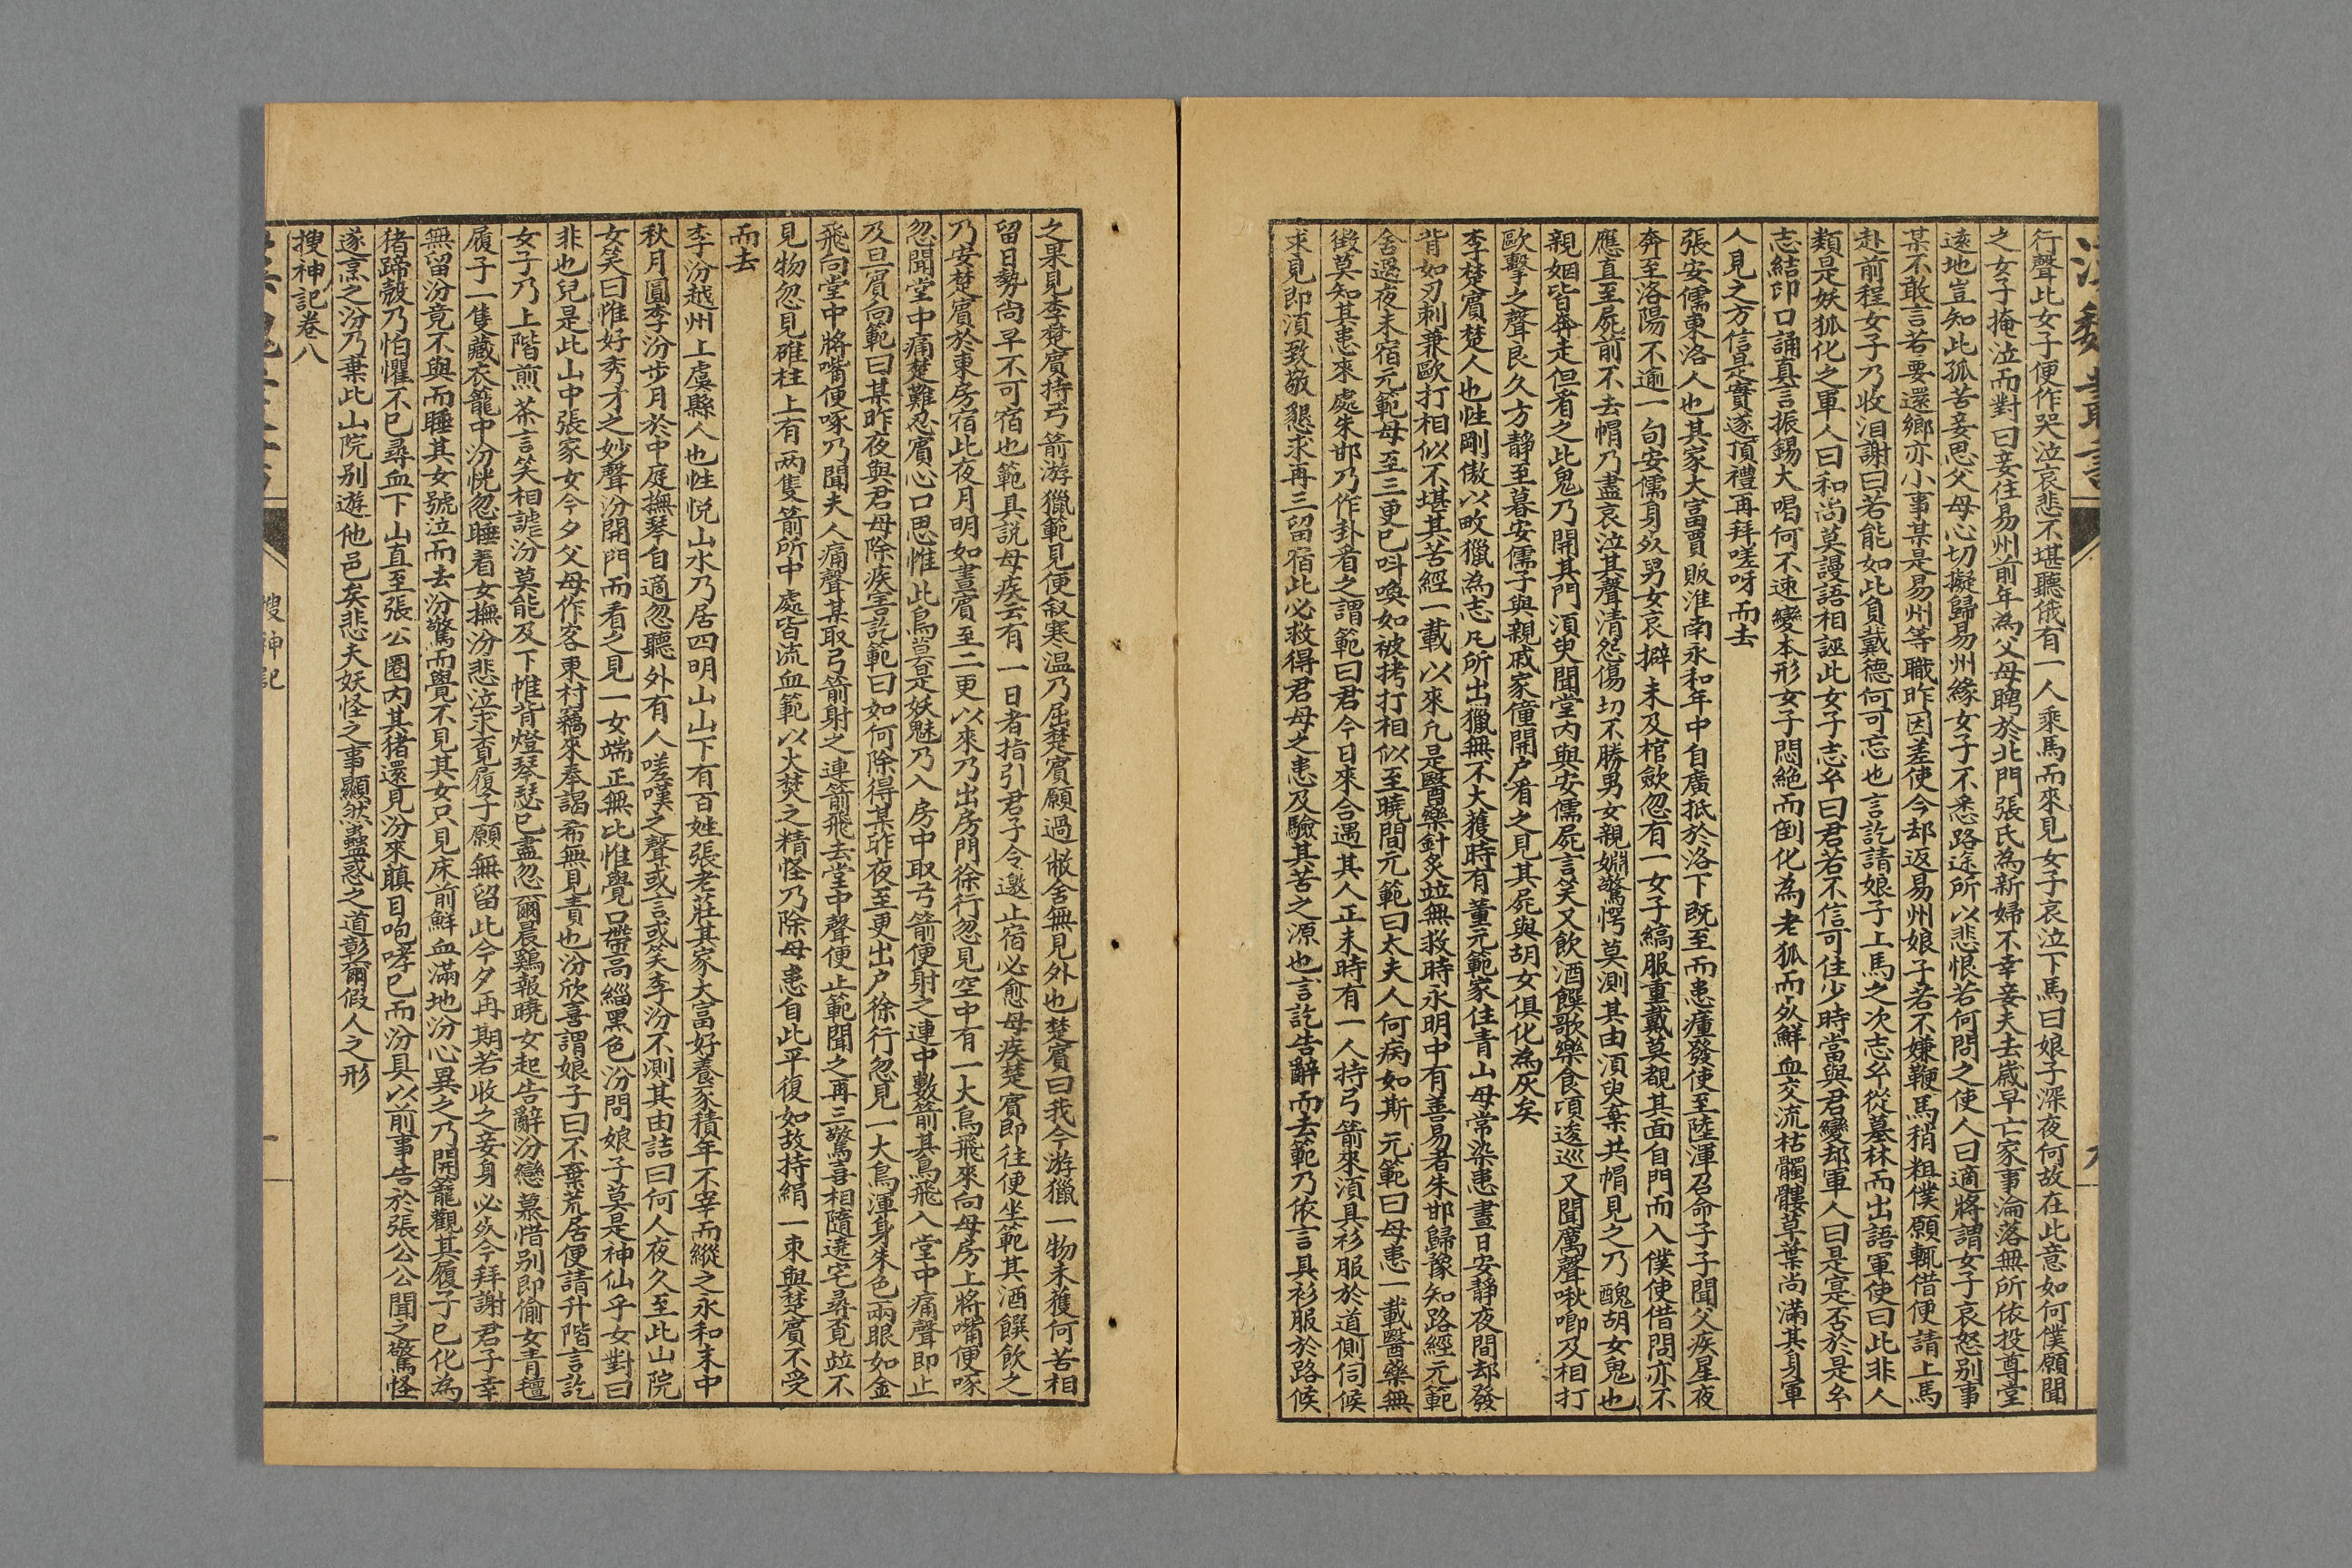 行聲此女子便作哭泣哀悲不堪聽俄有一人乘馬而來見女子哀泣下馬曰娘子深夜何故在此意如何僕願聞
之女子掩泣而對曰妾住易州前年為父母聘於北門張氏為新婦不幸妾夫去嵗早亡家事淪落無所依投尊堂
遠地豈知此孤苦妾思父母心切擬歸易州緣女子不悉路途所以悲恨若何問之使人曰適將謂女子哀怒别事
某不敢言若要還鄉亦小事某是易州等職昨因差使今却返易州娘子若不嫌鞭馬稍粗僕願輒借便請上馬
赴前程女子乃收泪謝曰若能如此負戴德何可忘也言訖請娘子上馬之次志𢆯從墓林而出語軍使曰此非人
類是妖狐化之軍人曰和尚莫謾語相誣此女子志𢆯曰君若不信可住少時當與君變却軍人曰是寔否於是𢆯
志結印口誦真言振錫大唱何不速變本形女子悶絶而倒化為老狐而死鮮血交流枯髑髏草葉尚滿其身軍
人見之方信是實遂頂禮再拜嗟呀而去
張安儒東洛人也其家大富賈販淮南永和年中自廣抵於洛下既至而患瘇發使至陸渾召命子子聞父疾星夜
奔至洛陽不逾一旬安儒身死男女哀擗未及棺歛忽有一女子縞服重戴莫覩其面自門而入僕使借問亦不
應直至屍前不去帽乃盡哀泣其聲清怨傷切不勝男女親婣驚愕莫測其由湏臾棄其帽見之乃醜胡女鬼也
親姻皆奔走但看之此鬼乃開其門湏臾聞堂内與安儒屍言笑又飲酒饌歌樂食頃逡巡又聞厲聲啾唧及相打
歐擊之聲良久方靜至暮安儒子與親戚家僮開户看之見其屍與胡女俱化為灰矣
李楚賓楚人也性剛傲以畋獵為志凡所出獵無不大獲時有董元範家住青山母常染患晝日安靜夜間却發
背如刃刺兼歐打相似不堪其苦經一載以來凡是醫藥針炙竝無救時永明中有善易者朱邯歸豫知路經元範
舍遇夜未宿元範母至三更已呌喚如被拷打相似至曉間元範曰太夫人何病如斯元範曰母患一載醫藥無
徴莫知其患來處朱邯乃作卦看之謂範曰君今日來合遇其人正未時有一人持弓箭來湏具衫服於道側伺候
求見即湏致敬懇求再三留宿此必救得君母之患及驗其苦之源也言訖告辭而去範乃依言具衫服於路候
之果見李楚賓持弓箭游獵範見便叙寒温乃屈楚賓願過敝舍無見外也楚賓曰我今游獵一物未獲何苦相
留日勢尚早不可宿也範具説母疾云有一日者指引君子令邀止宿必愈母疾楚賓即往便坐範其酒饌飲之
乃安楚賓於東房宿此夜月明如晝賓至二更以來乃出房門徐行忽見空中有一大鳥飛來向母房上將嘴便啄
忽聞堂中痛楚難忍賓心口思惟此鳥莫是妖魅乃入房中取弓箭便射之連中數箭其鳥飛入堂中痛聲即止
及旦賓向範曰某昨夜與君母除疾害訖範曰如何除得某昨夜至更出户徐行忽見一大鳥渾身朱色兩眼如金
飛向堂中將嘴便啄乃聞夫人痛聲某取弓箭射之連箭飛去堂中聲便止範聞之再三驚喜相隨遶宅尋覓竝不
見物忽見碓柱上有兩隻箭所中處皆流血範以火焚之精怪乃除母患自此平復如故持絹一束與楚賓不受
而去
李汾越州上虞縣人也性悦山水乃居四明山山下有百姓張老莊其家大富好養豕積年不宰而縱之永和末中
秋月圓李汾步月於中庭撫琴自適忽聽外有人嗟嘆之聲或言或笑李汾不測其由詰曰何人夜久至此山院
女笑曰惟好秀才之妙聲汾開門而看之見一女端正無比惟覺口帶高緇黑色汾問娘子莫是神仙乎女對曰
非也兒是此山中張家女今夕父母作客東村竊來奉謁希無見責也汾欣喜謂娘子曰不棄荒居便請升階言訖
女子乃上階煎茶言笑相謔汾莫能及下帷背燈琴瑟已盡忽爾晨鷄報曉女起告辭汾戀慕惜别即偷女青氊
履子一隻藏衣籠中汾恍忽睡着女撫汾悲泣求覓履子願無留此今夕再期若收之妾身必死今拜謝君子幸
無留汾竟不與而睡其女號泣而去汾驚而覺不見其女只見床前鮮血滿地汾心異之乃開籠觀其履子已化為
猪蹄殼乃怕懼不已尋血下山直至張公圈内其猪還見汾來瞋目咆哮已而汾具以前事告於張公公聞之驚怪
遂烹之汾乃棄此山院别遊他邑矣悲夫妖怪之事顯然蠱惑之道彰爾假人之形
搜神記卷八
搜神記